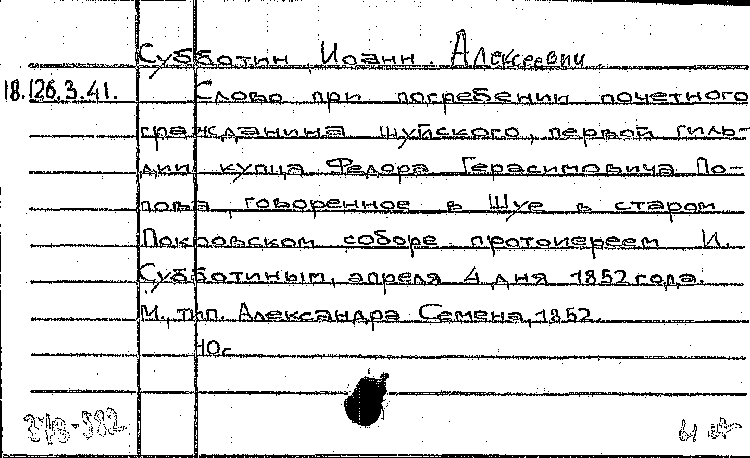 Субботин, Иоанн. Алексеевич
18.126.3.41. Слово при погребении почетного
гражданина шуйского, первой гиль-
дии купца Федора Герасимовича По-
пова, говоренное в Шуе в старом
Покровском соборе протоиереем И.
Субботиным, апреля 4 дня 1852 года.
М., тип. Александра Семена, 1852.
10с